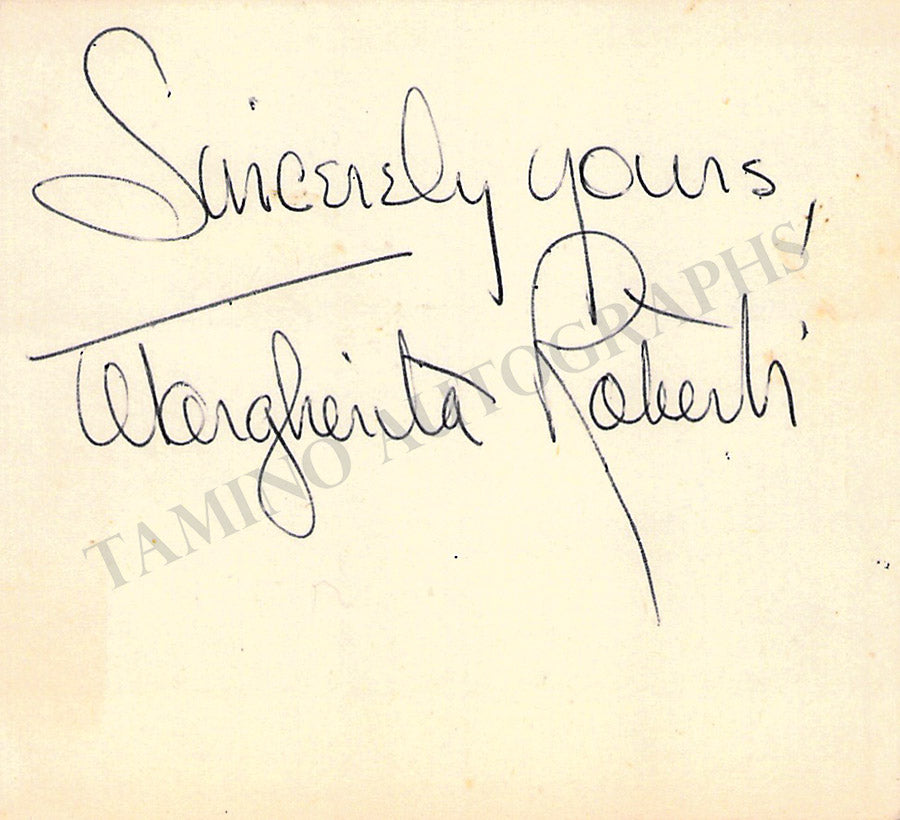 Sincerely yours,
Margherita Roberti
TAMINO AUTOGRAPHS